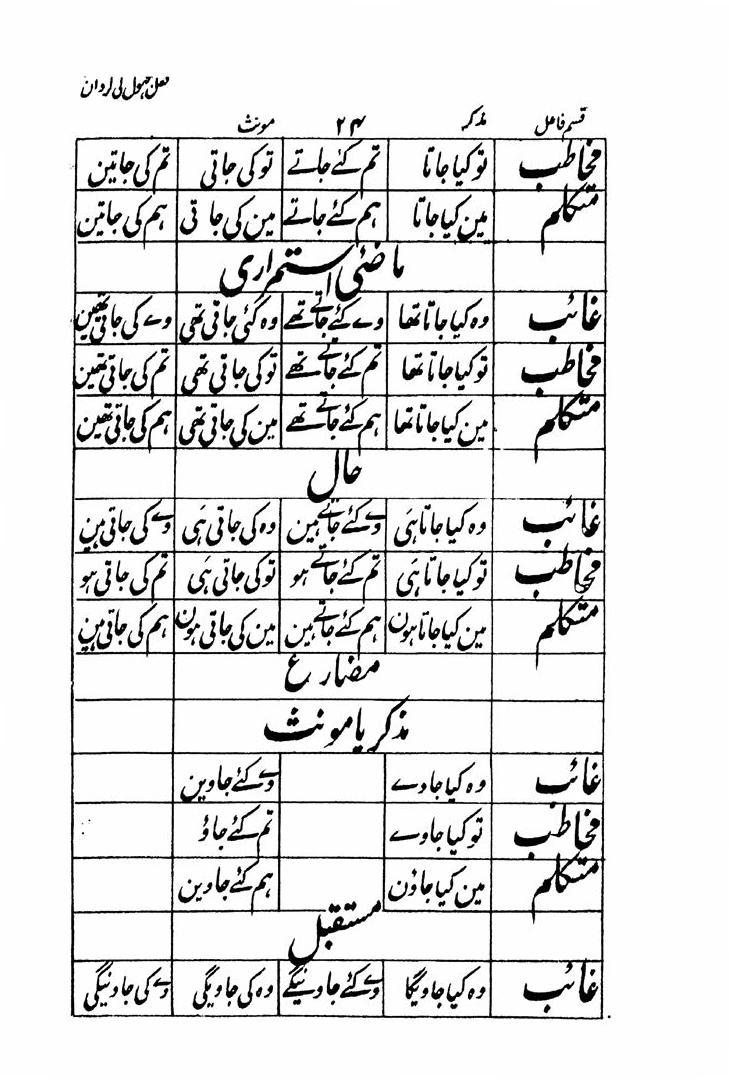 فعل مجہول کی گردان
قسم فاعل مذکر ۲۴ مونث
مخاطب تو کیا جاتا تم کئے جاتے تو کی جاتی تم کی جاتین
متکلم مین کیا جاتا ہم کئے جاتے مین کی جاتی ہم کی جاتین
ماضئی استمراری
غائب وہ کیا جاتا تھا وے کئے جاتے تھے وہ کئی جاتی تھی وے کی جاتی تھین
مخاطب تو کیا جاتا تھا تم کئے جاتے تھے تو کی جاتی تھی تم کی جاتی تھین
متکلم مین کیا جاتا تھا ہم کئے جاتے تھے مین کی جاتی تھی ہم کی جاتی تھین
حال
غائب وہ کیا جاتا ہَی وے کئے جاتے ہین وہ کی جاتی ہَی وے کی جاتی ہین
مخاطب تو کیا جاتا ہَی تم کئے جاتے ہو تو کی جاتی ہَی تم کی جاتی ہو
متکلم مین کیا جاتا ہون ہم کئے جاتے ہین مین کی جاتی ہون ہم کی جاتی ہین
مضارع
مذکر یا مونث
غائب وہ کیا جاوے وے کئے جاوین
مخاطب تو کیا جاوے تم کئے جاؤ
متکلم مین کیا جاؤن ہم کئے جاوین
مستقبل
غائب وہ کیا جاویگا وے کئے جاوینگے وہ کی جاویگی وے کی جاوینگی